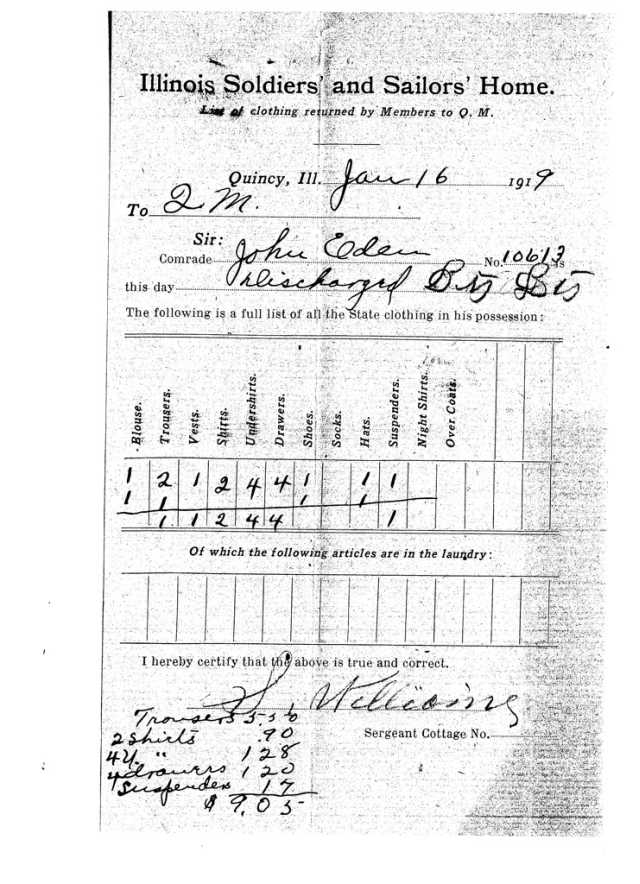 Illinois Soldiers' and Sailors' Home.
List of clothing returned by Members to Q. M.
Quincy, Ill. Jan 16 1919
To Q M.
Sir:
Comrade John Eden No. 10613 is
this day Discharged
The following is a full list of all the State clothing in his possession:
Blouse. Trousers. Vests. Shirts. Undershirts. Drawers. Shoes. Socks. Hats. Suspenders. Night Shirts. Over Coats.
1 2 1 2 4 4 1 1 1
1 1 1 1
1 1 2 4 4 1
Of which the following articles are in the laundry:
I hereby certify that the above is true and correct.
Williams
Trousers 5 50
Sergeant Cottage No.
2 Shirts .90
4 U. " 1 28
4 drawers 1 20
1 Suspenders 17
$ 9.05